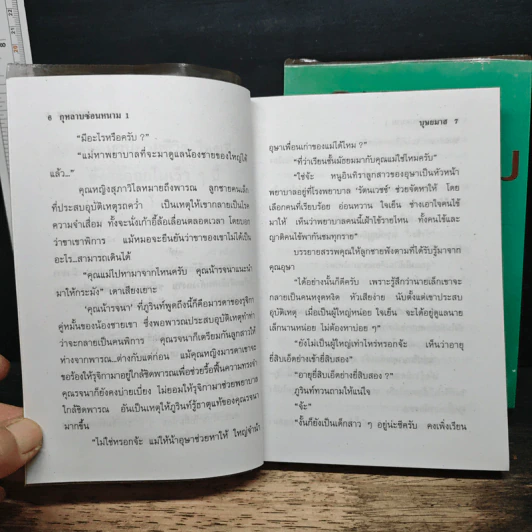 6 กุหลาบซ่อนหนาม 1
"มีอะไรหรือครับ ?"
"แม่หาพยาบาลที่จะมาดูแลน้องชายของใหญ่ได้
แล้ว..."
คุณหญิงสุภาวิไลหมายถึงพารณ ลูกชายคนเล็ก
ที่ประสบอุบัติเหตุรถคว่ำ เป็นเหตุให้เขากลายเป็นโรค
ความจำเสื่อม ทั้งจะนั่งเก้าอี้ล้อเลื่อนตลอดเวลา โดยบอก
ว่าขาเขาพิการ แม้หมอจะยืนยันว่าขาของเขาไม่ได้เป็น
อะไร...สามารถเดินได้
"คุณแม่ไปหามาจากไหนครับ คุณน้ารจนาแนะนำ
มาให้กระมัง" เดาเสียงเยาะ
'คุณน้ารจนา' ที่ภูรินท์พูดถึงนี้ก็คือมารดาของรุจิกา
คู่หมั้นของน้องชายเขา ซึ่งพอพารณประสบอุบัติเหตุทำท่า
ว่าจะกลายเป็นคนพิการ คุณรจนาก็เตรียมกันลูกสาวให้
ห่างจากพารณ...ต่างกับแต่ก่อน แม้คุณหญิงมารดาเขาจะ
ขอร้องให้รุจิกามาอยู่ใกล้ชิดพารณเพื่อช่วยรื้อฟื้นความทรงจำ
คุณรจนาก็ยังคงบ่ายเบี่ยง ไม่ยอมให้รุจิกามาช่วยพยาบาล
ใกล้ชิดพารณ อันเป็นเหตุให้ภูรินท์รู้ธาตุแท้ของคุณรจนา
มากขึ้น
"ไม่ใช่หรอกจ้ะ แม่ให้น้าอุษาช่วยหาให้ ใหญ่จำน้า
บุษยมาส 7
อุษาเพื่อนเก่าของแม่ได้ไหม ?"
"ที่ว่าเรียนชั้นมัธยมมากับคุณแม่ใช่ไหมครับ"
"ใช่จ้ะ หนูอินทิราลูกสาวของอุษาเป็นหัวหน้า
พยาบาลอยู่ที่โรงพยาบาล 'รัตนเวช' ช่วยจัดหาให้ โดย
เลือกคนที่เรียบร้อย อ่อนหวาน ใจเย็น ช่างเอาใจคนไข้
มาให้ เห็นว่าพยาบาลคนนี้เฝ้าไข้รายไหน ทั้งคนไข้และ
ญาติคนไข้พากันชมทุกราย"
บรรยายสรรพคุณให้ลูกชายฟังตามที่ได้รับรู้มาจาก
คุณอุษา
"ได้อย่างนั้นก็ดีครับ เพราะรู้สึกว่านายเล็กเขาจะ
กลายเป็นคนหงุดหงิด หัวเสียง่าย นับตั้งแต่เขาประสบ
อุบัติเหตุ เมื่อเป็นผู้ใหญ่หน่อย ใจเย็น จะได้อยู่ดูแลนาย
เล็กนานหน่อย ไม่ต้องหาบ่อย ๆ"
"ยังไม่เป็นผู้ใหญ่เท่าไหร่หรอกจ้ะ เห็นว่าอายุ
ยี่สิบเอ็ดย่างเข้ายี่สิบสอง"
"อายุยี่สิบเอ็ดย่างยี่สิบสอง ?"
ภูรินท์ทวนถามให้แน่ใจ
"จ้ะ"
"งั้นก็ยังเป็นเด็กสาว ๆ อยู่น่ะซีครับ คงเพิ่งเรียน